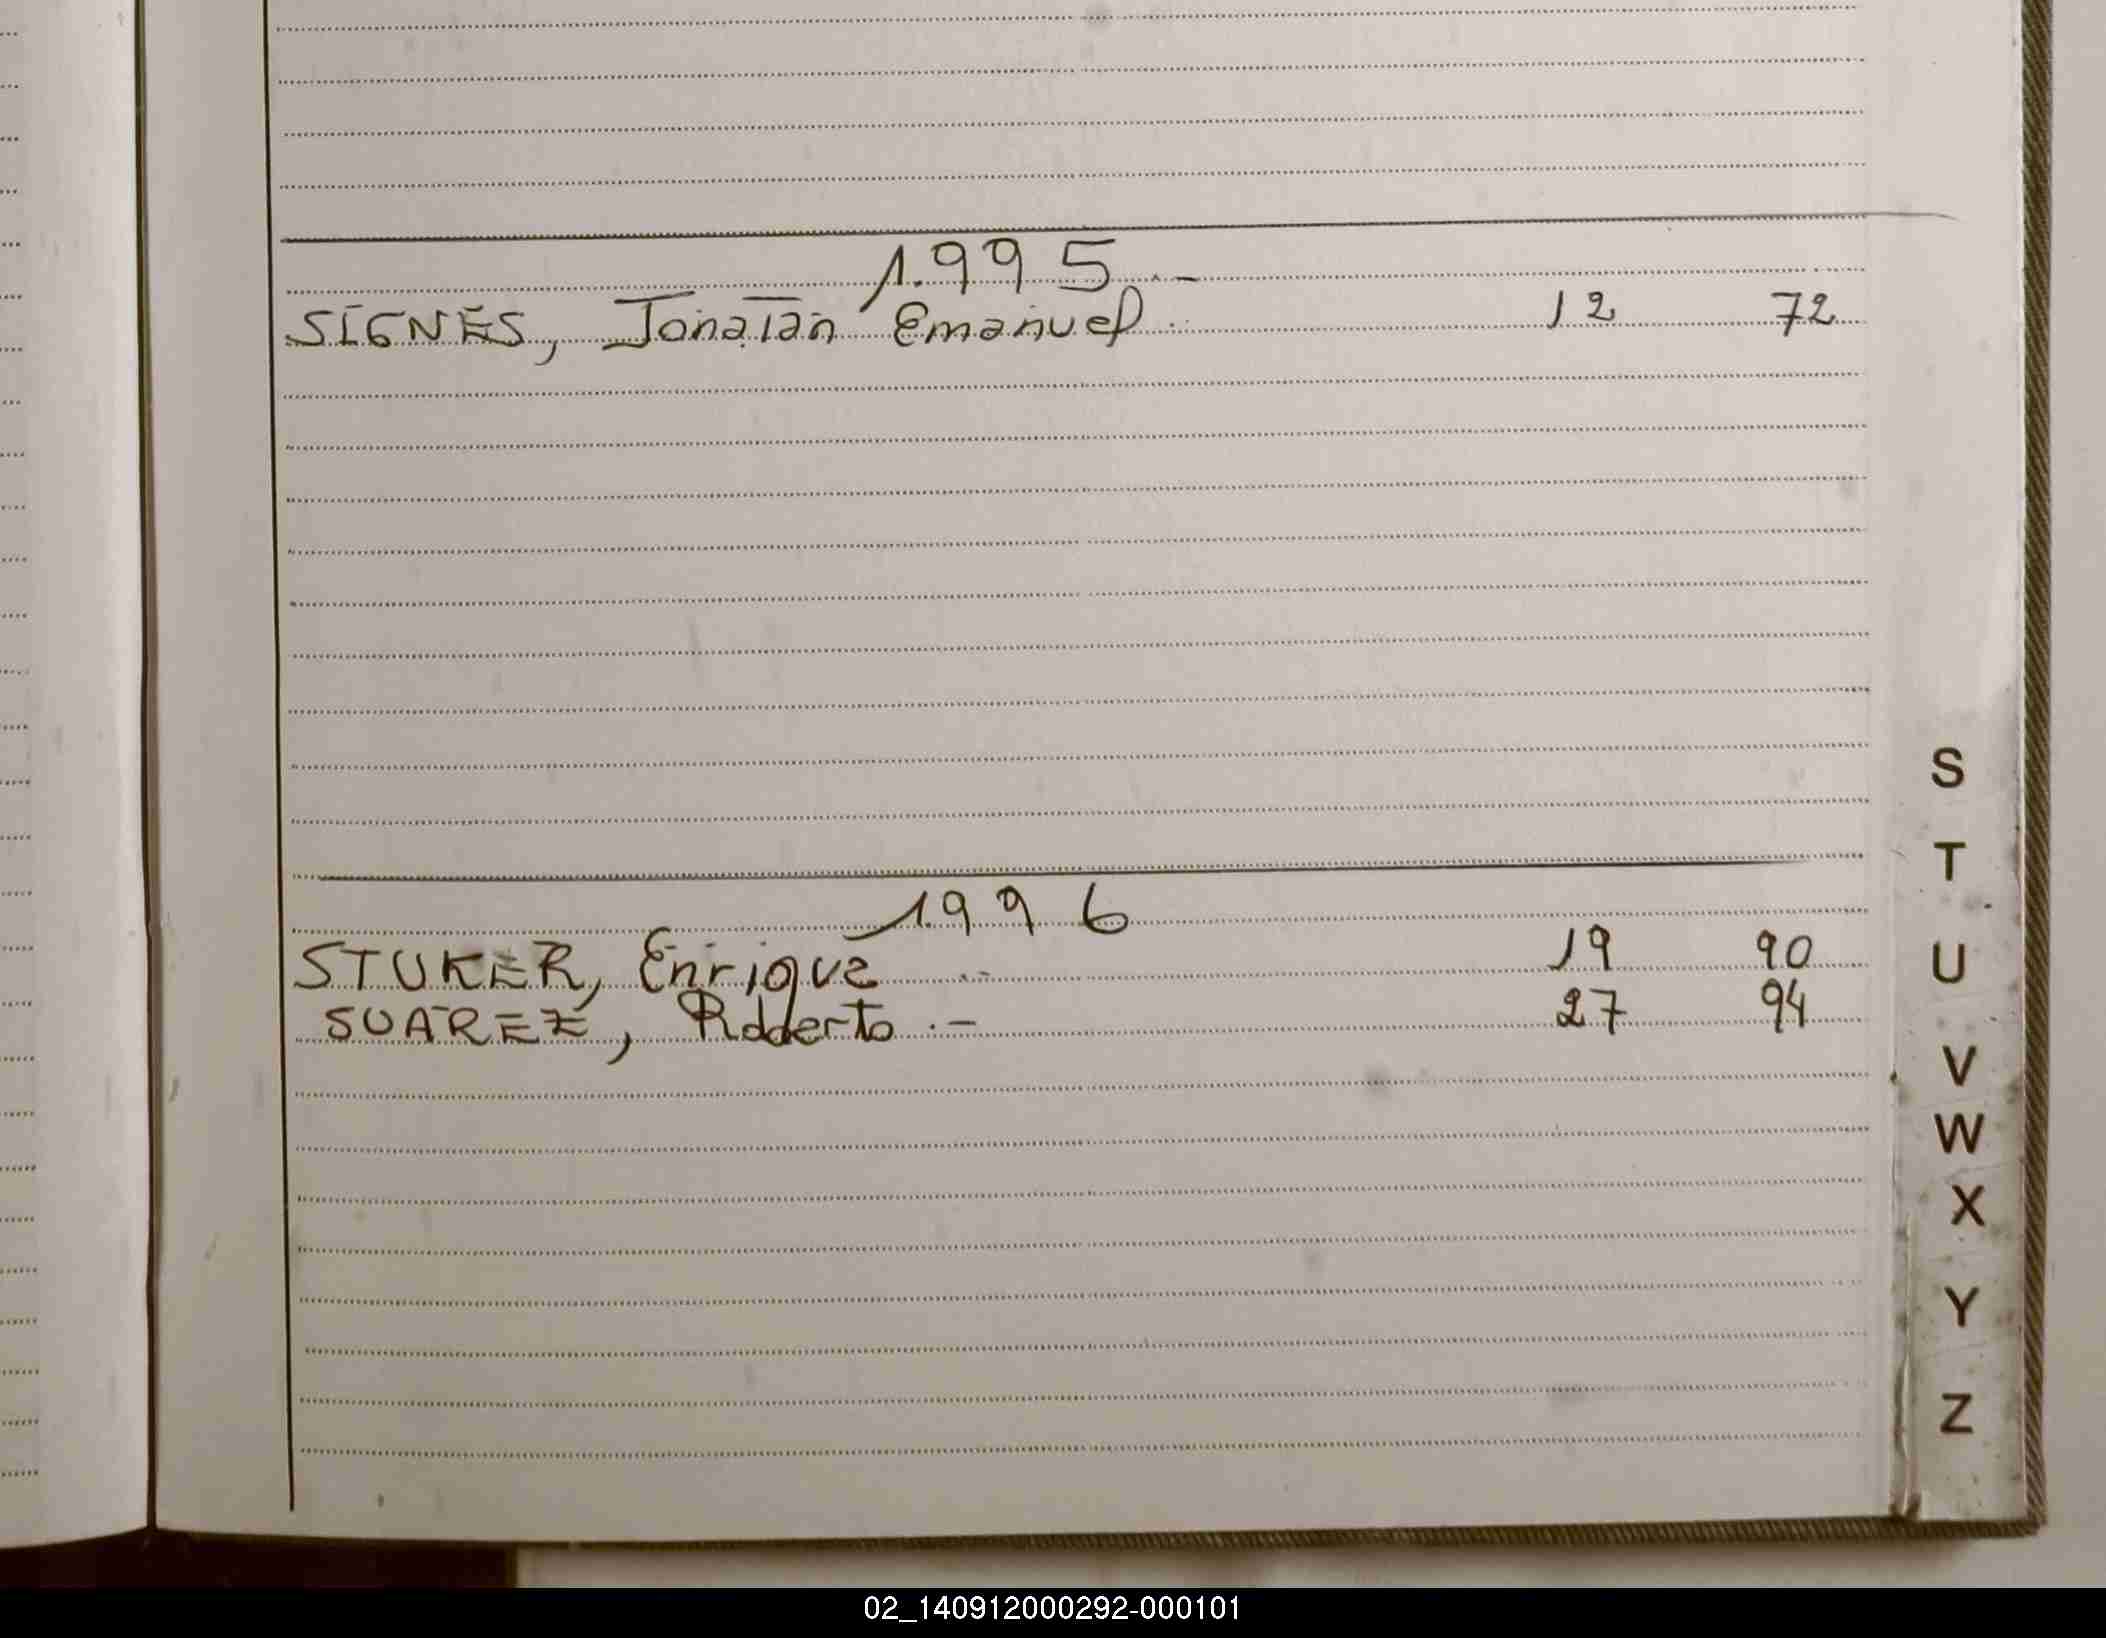 1.995.-
SIGNES, Jonatan Emanuel. 12 72
1996
STUKER, Enrique .- 19 90
SUAREZ, Roberto .- 27 94
S
T
U
V
W
X
Y
Z
02_140912000292-000101